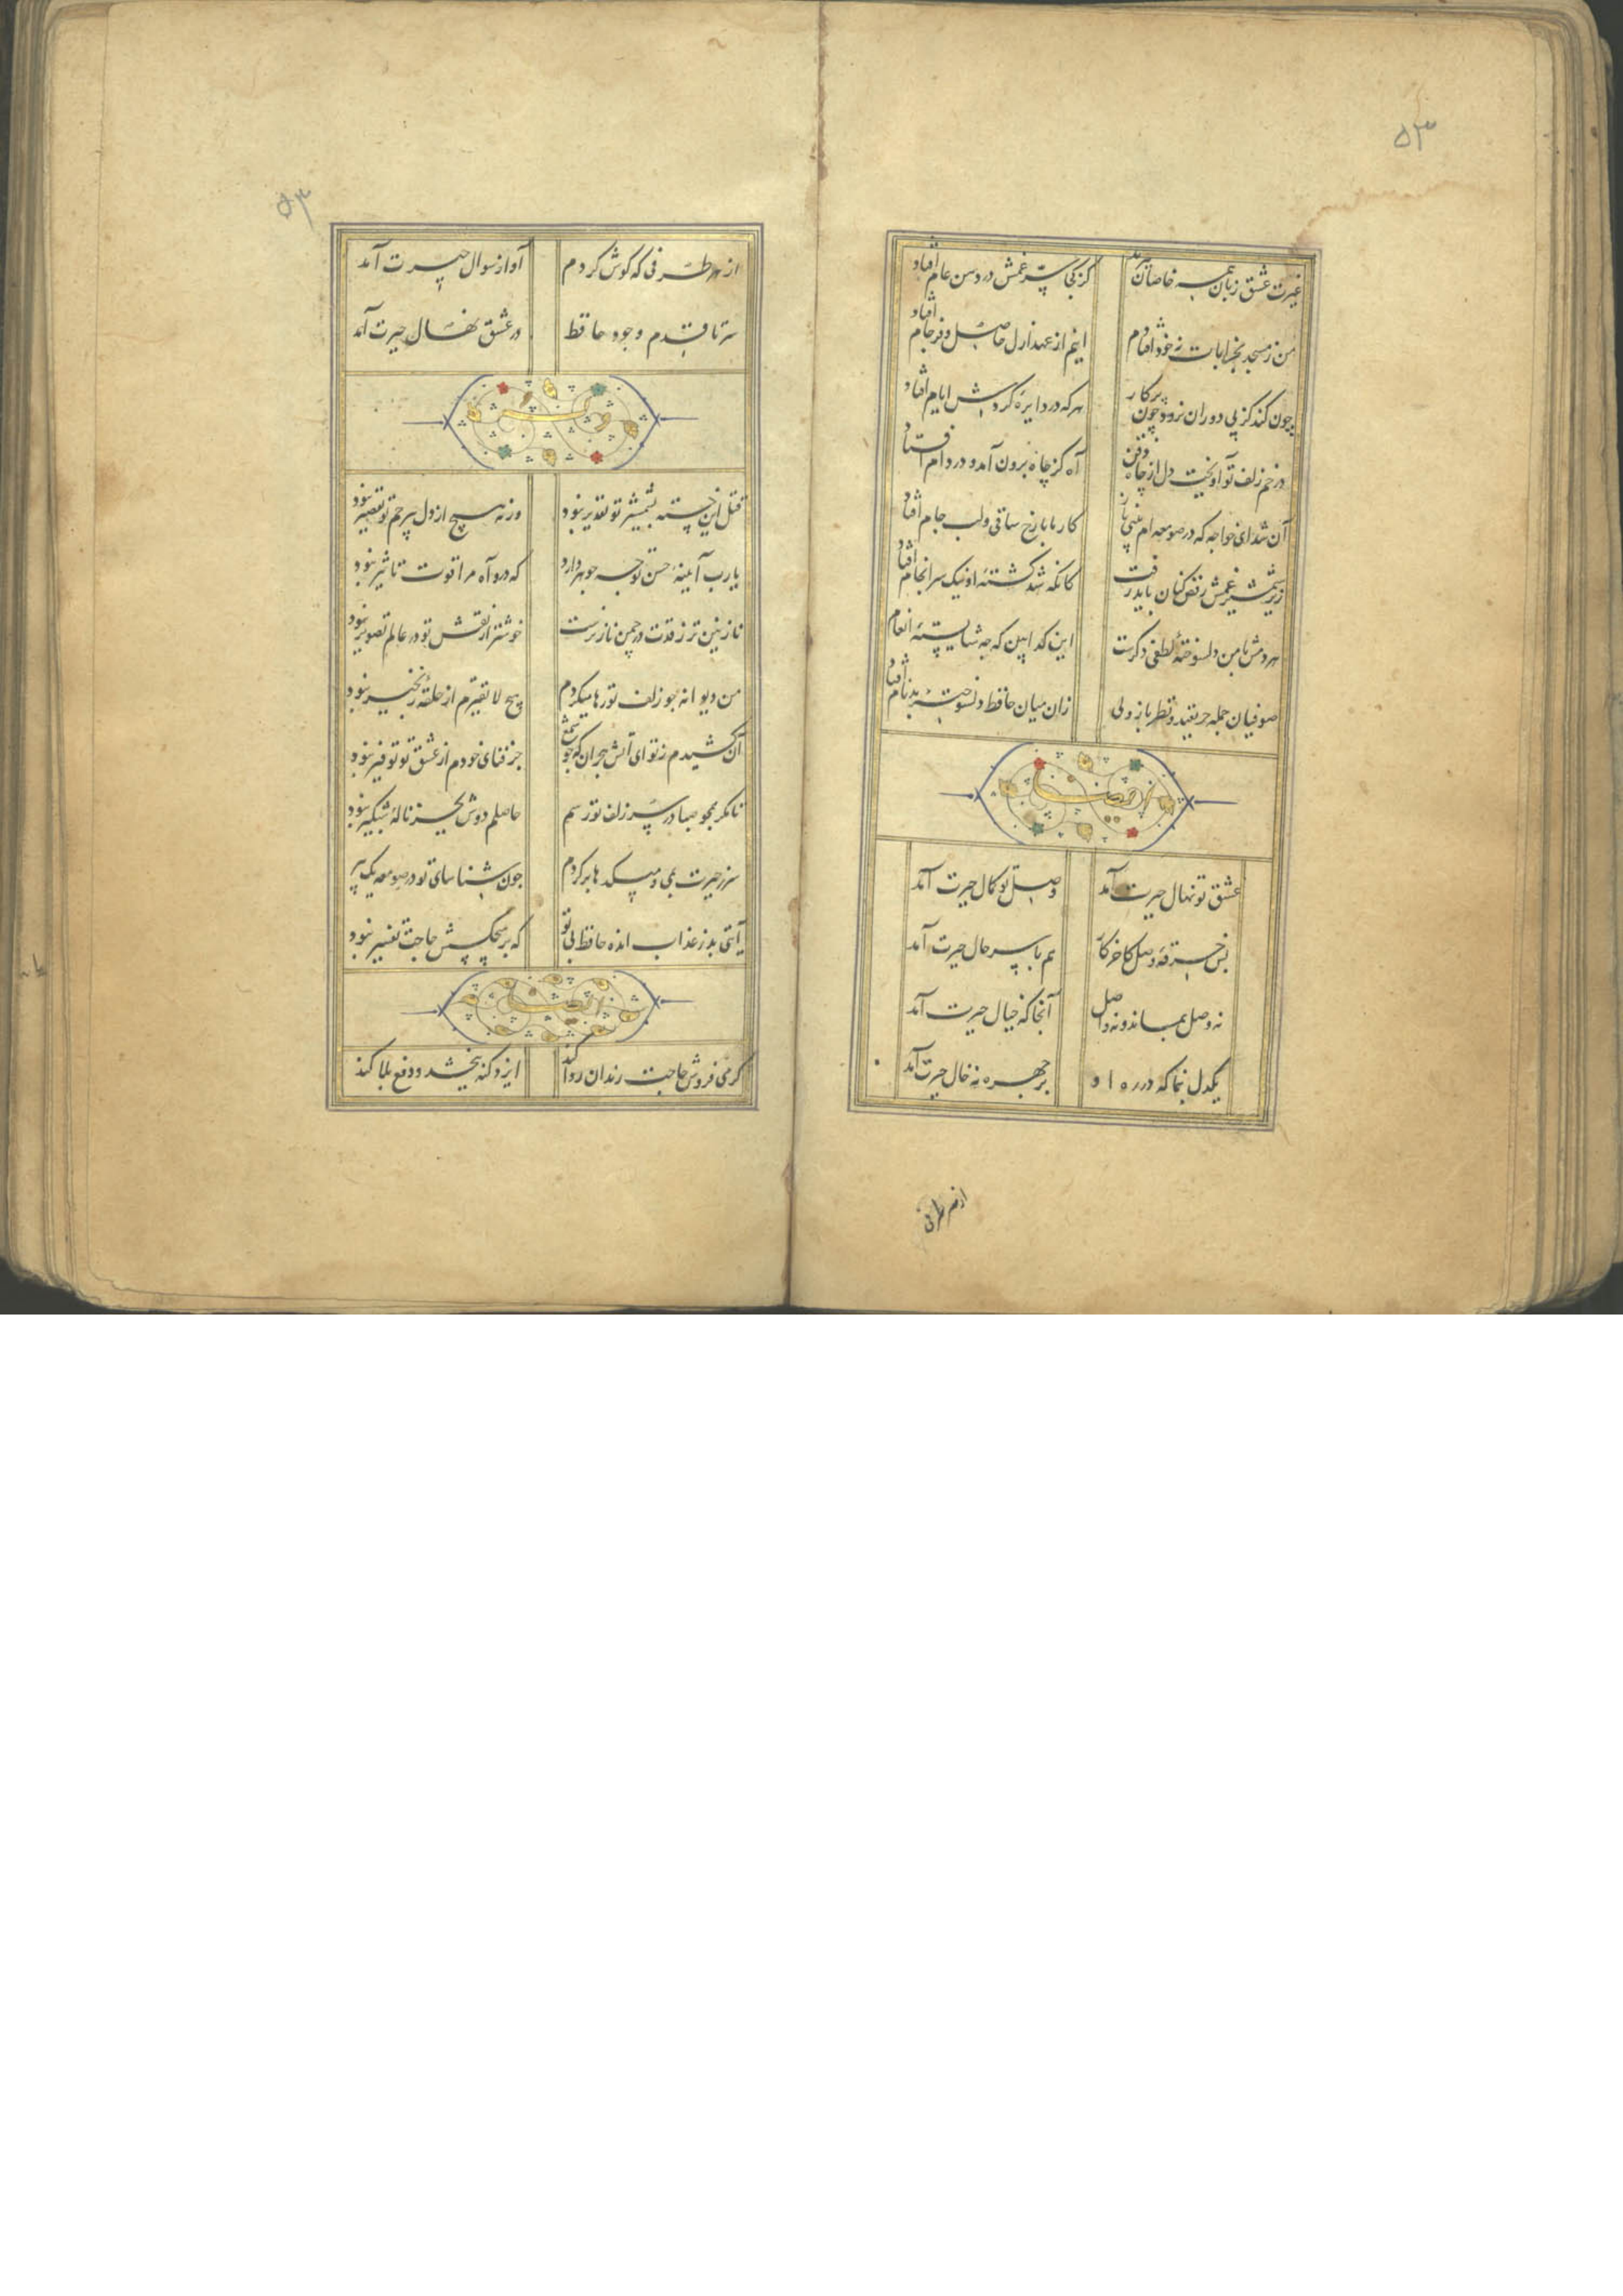 ۵۳
غیرت عشق زبان همه خاصان ببرید
کز کجا سر غمش در دهن عام افتاد
من ز مسجد بخرابات نه خود افتادم
اینم از عهد ازل حاصل و فرجام افتاد
چون کند کز پی دوران نرود چون پرکار
هرکه در دایره کردش ایام افتاد
در خم زلف تو آویخت دل از چاه ذقن
آه کز چاه برون آمد و در دام افتاد
آن شد ای خواجه که در صومعه ام بینی باز
کار ما با رخ ساقی و لب جام افتاد
زیر شمشیر غمش رقص کنان باید رفت
کانکه شد کشته او نیک سرانجام افتاد
هر دمش با من دلسوخته لطفی دکرست
این کدا بین که چه شایسته انعام افتاد
صوفیان جمله حریفند و نظرباز ولی
زان میان حافظ دلسوخته بدنام افتاد
ایضا
عشق تو نهال حیرت آمد
وصل تو کمال حیرت آمد
بس غرقه وصل کاخر کار
هم با سر حال حیرت آمد
نه وصل بماند و نه واصل
آنجا که خیال حیرت آمد
یکدل بنما که در ره او
بر چهره نه خال حیرت آمد
از هر طرفی
۵۳
از هر طرفی که کوش کردم
آواز سوال حیرت آمد
سر تا قدم وجود حافظ
در عشق نهال حیرت آمد
قتل این خسته بشمشیر تو تقدیر نبود
ورنه هیچ از دل بیرحم تو تقصیر نبود
یارب آیینه حسن تو چه جوهر دارد
که درو آه مرا قوت تاثیر نبود
نازنین تر ز قدت در چمن ناز نرست
خوشتر از نقش تو در عالم تصویر نبود
من دیوانه چو زلف تو رها میکردم
هیچ لایقترم از حلقه زنجیر نبود
آن کشیدم ز تو ای آتش هجران که چو شمع
جز فنای خودم از عشق تو توفیر نبود
تا مکر همچو صبا در سر زلف تو رسم
حاصلم دوش بجز ناله شبکیر نبود
سر ز حیرت بمی و میکدها بر کردم
چون شناسای تو در صومعه یک پیر نبود
آیتی بد ز عذاب انده حافظ بی تو
که بر هیچکسش حاجت تفسیر نبود
ایضا
کر می فروش حاجت رندان روا کند
ایزد کنه ببخشد و دفع بلا کند